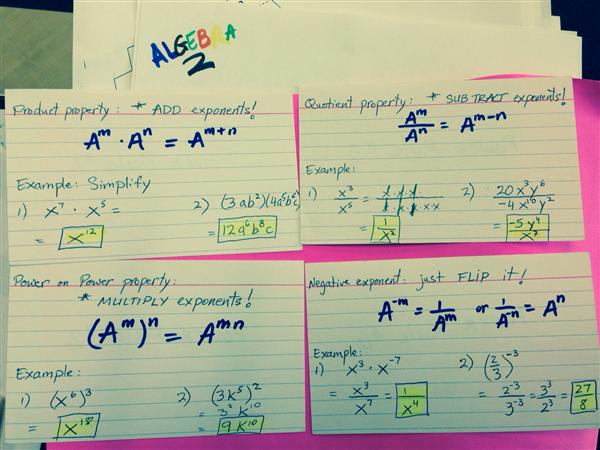 ALGEBRA
2
Product property: * ADD exponents!
A^m · A^n = A^(m+n)
Example: Simplify
1) x^7 · x^5 =
= x^12
2) (3ab^2)(4a^5b^6c)
12a^6b^8c
Quotient property: * SUBTRACT exponents!
A^m/A^n = A^(m-n)
Example:
1) x^3/x^5 = x·x·x/x·x·x·x·x
= 1/x^2
2) 20x^3y^6/-4x^10y^2
= -5y^4/x^7
Power on Power property:
* MULTIPLY exponents!
(A^m)^n = A^(mn)
Example:
1) (x^6)^3
= x^18
2) (3k^5)^2
= 3^2 k^10
= 9k^10
Negative exponent: just FLIP it!
A^-m = 1/A^m or 1/A^-n = A^n
Example:
1) x^3 · x^-7
= x^3/x^7 = 1/x^4
2) (2/3)^-3
= 2^-3/3^-3 = 3^3/2^3 = 27/8